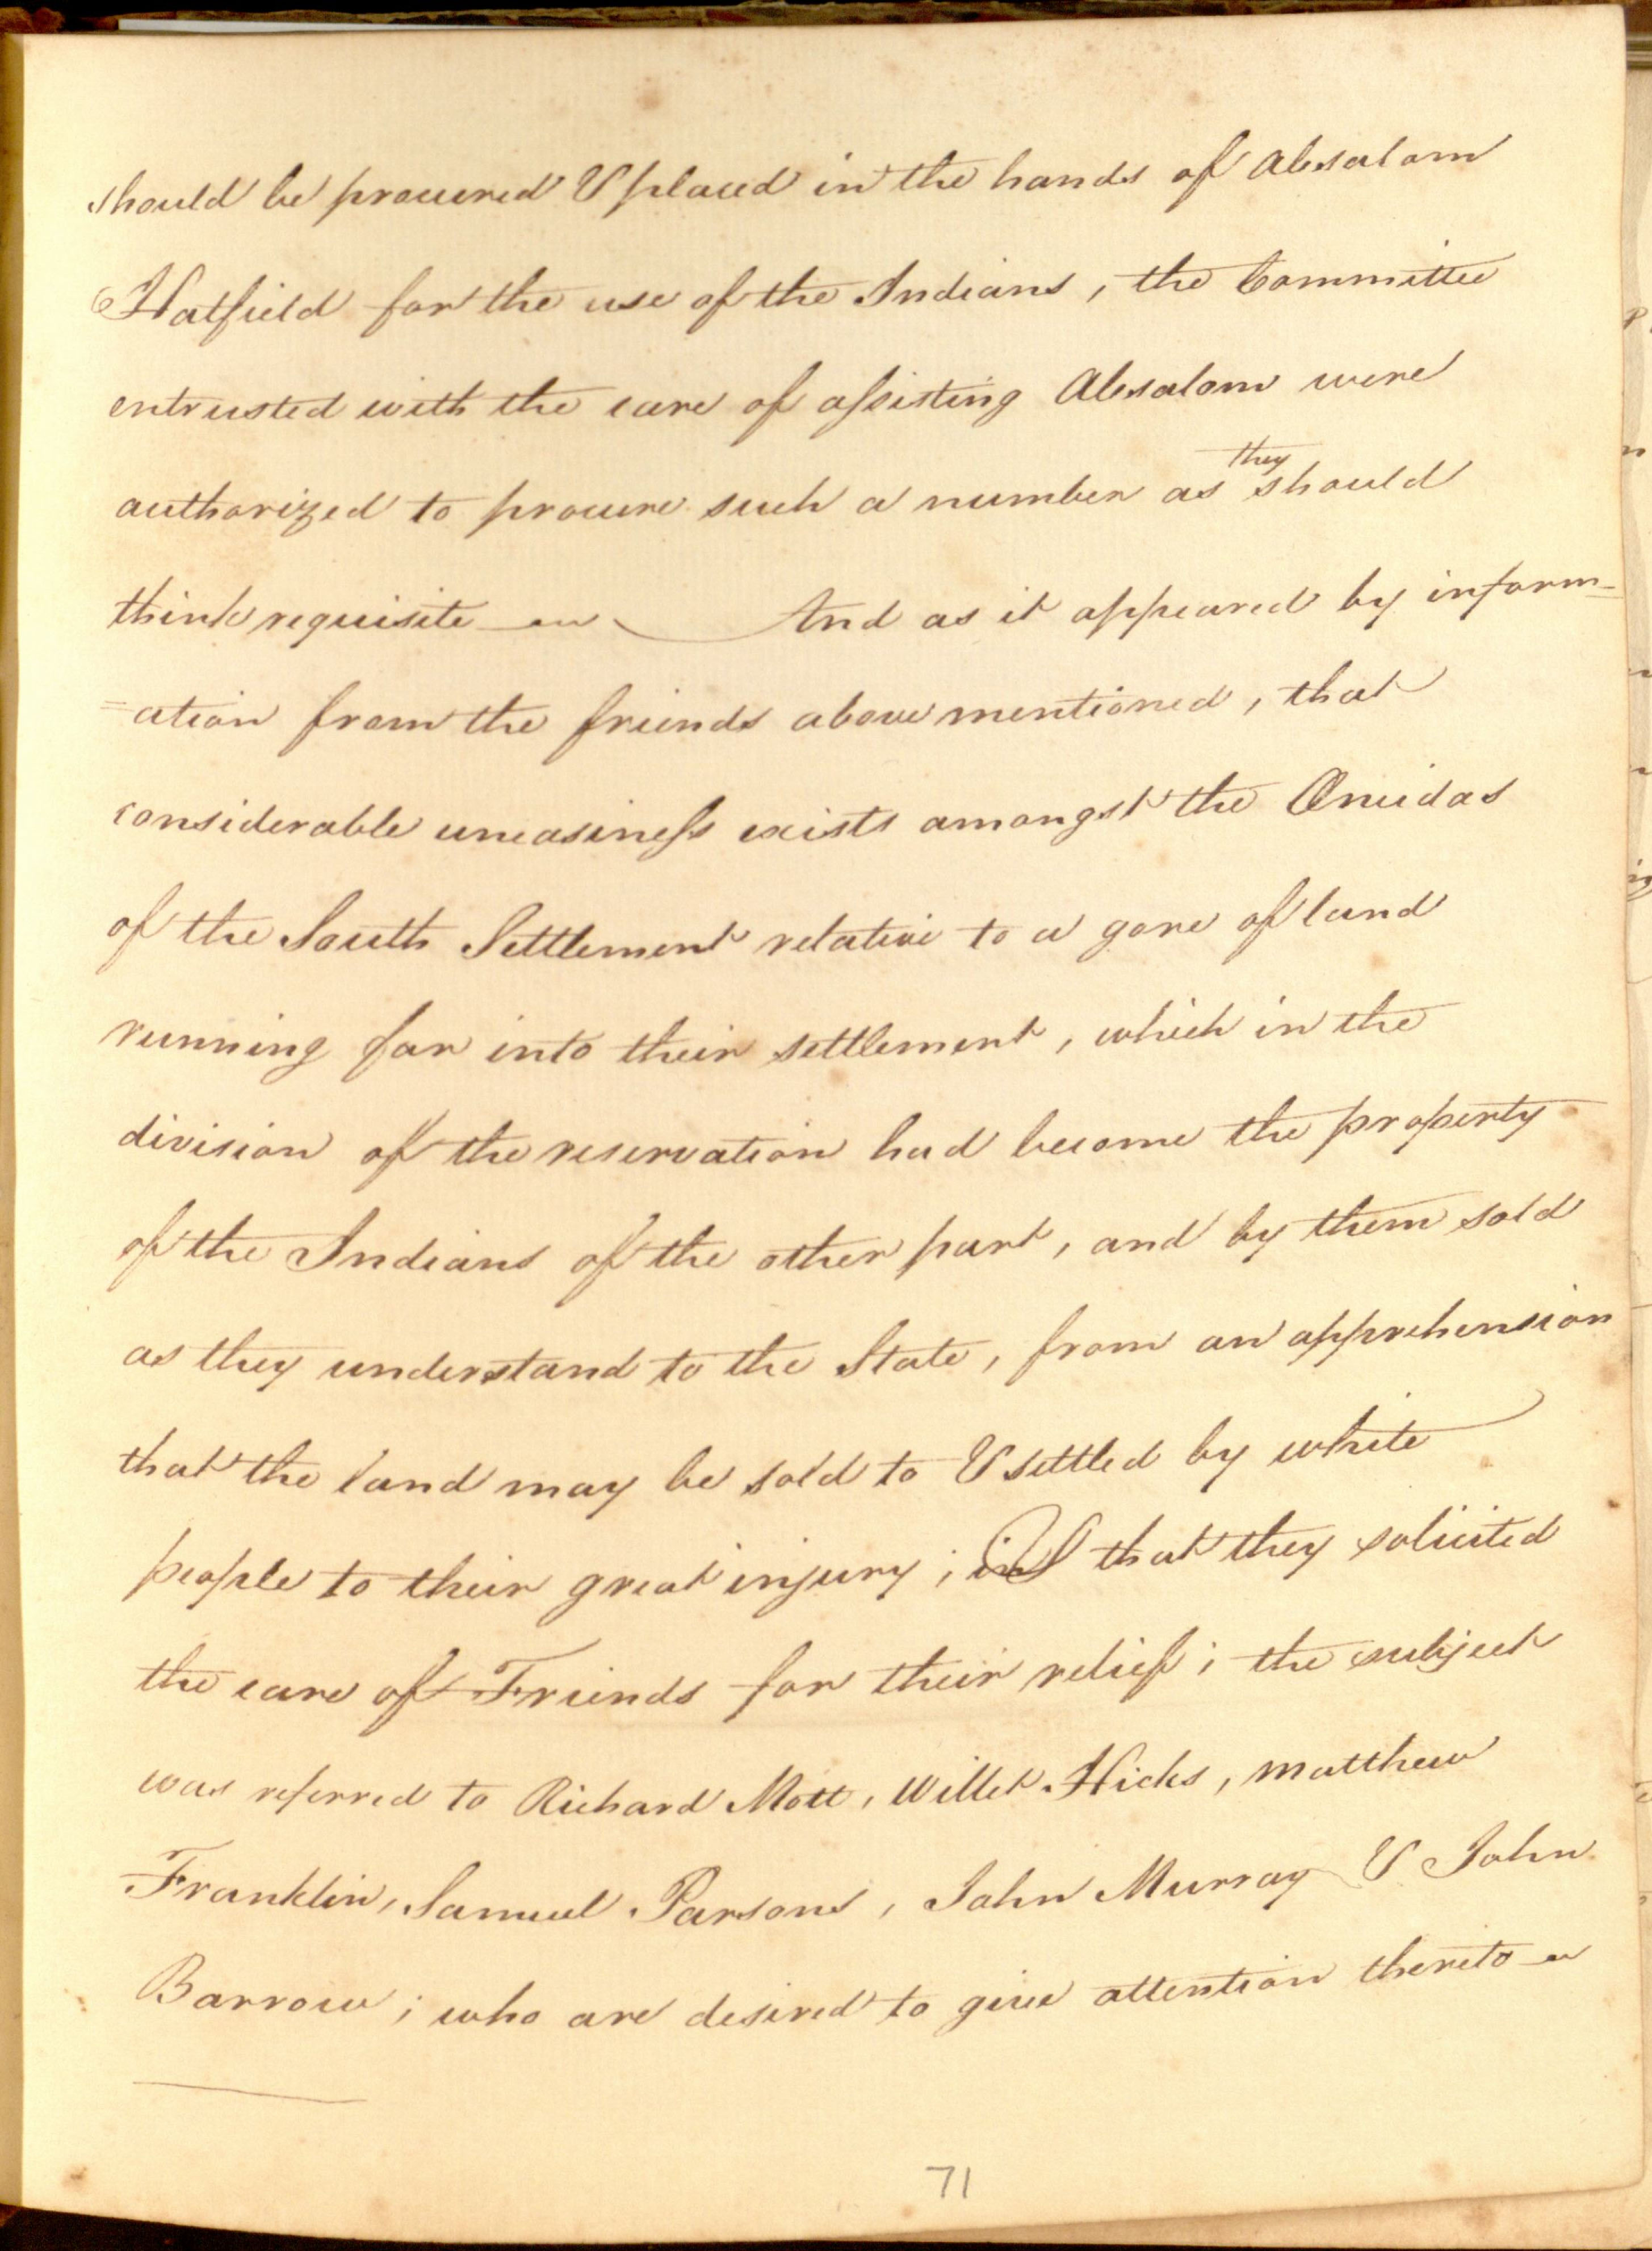 should be procured & placed in the hands of Absalom
Hatfield for the use of the Indians, the Committee
entrusted with the care of assisting Absalom were
authorized to procure such a number as they should
think requisite — And as it appeared by inform-
=ation from the friends above mentioned, that
considerable uneasiness exists amongst the Oneidas
of the South Settlement relative to a gore of land
running far into their settlement, which in the
division of the reservation had become the property
of the Indians of the other part, and by them sold
as they understand to the State, from an apprehension
that the land may be sold to & settled by white
people to their great injury; & that they solicited
the care of Friends for their relief; the subject
was referred to Richard Mott, Willet Hicks, Matthew
Franklin, Samuel Parsons, John Murray & John
Barrow; who are desired to give attention thereto
71